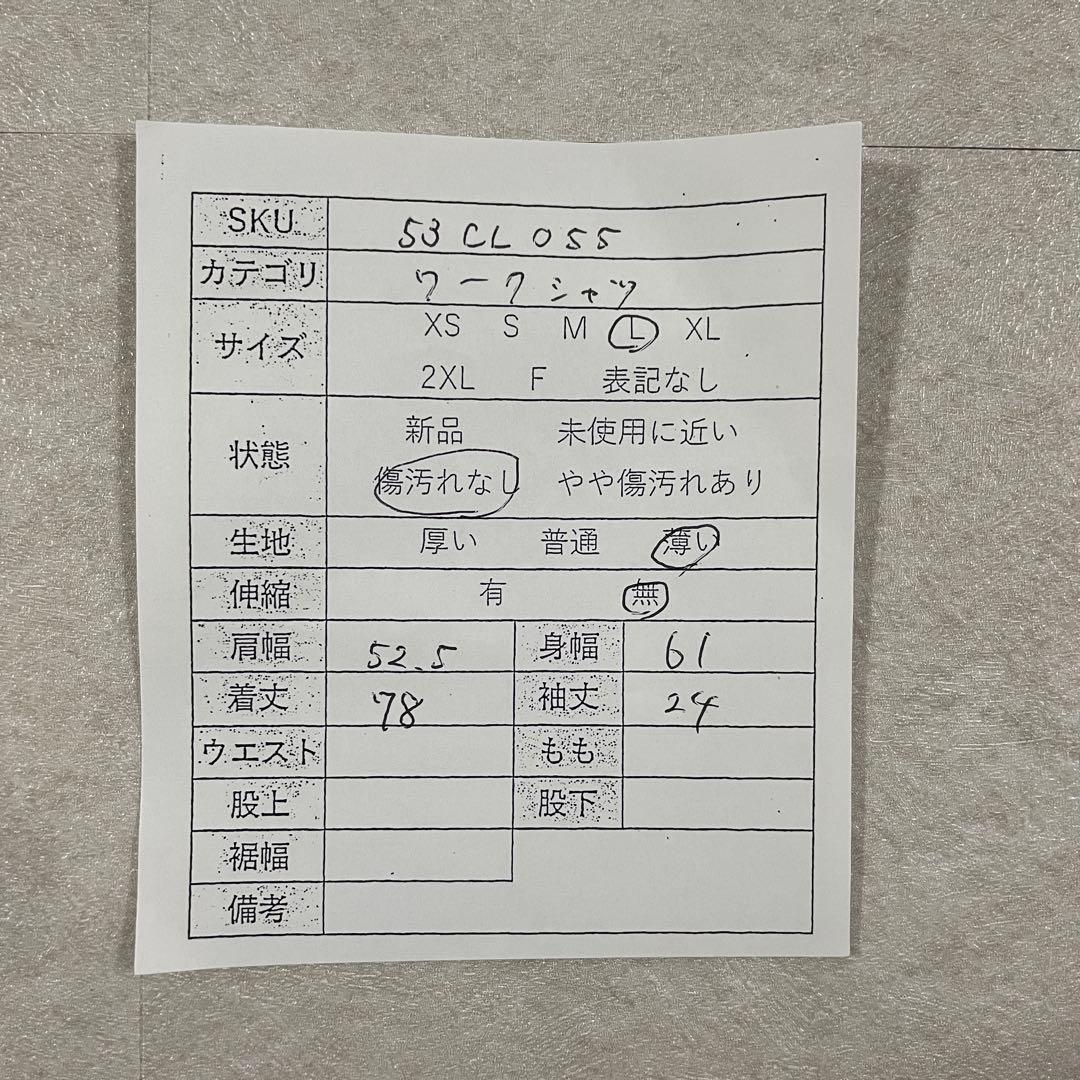 SKU 53CL055
カテゴリ ワークシャツ
サイズ XS S M L XL
2XL F 表記なし
状態 新品 未使用に近い
傷汚れなし やや傷汚れあり
生地 厚い 普通 薄い
伸縮 有 無
肩幅 52.5 身幅 61
着丈 78 袖丈 24
ウエスト もも
股上 股下
裾幅
備考